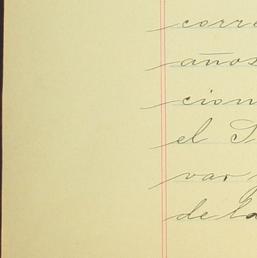 corre
años
cion
el S
var
de la